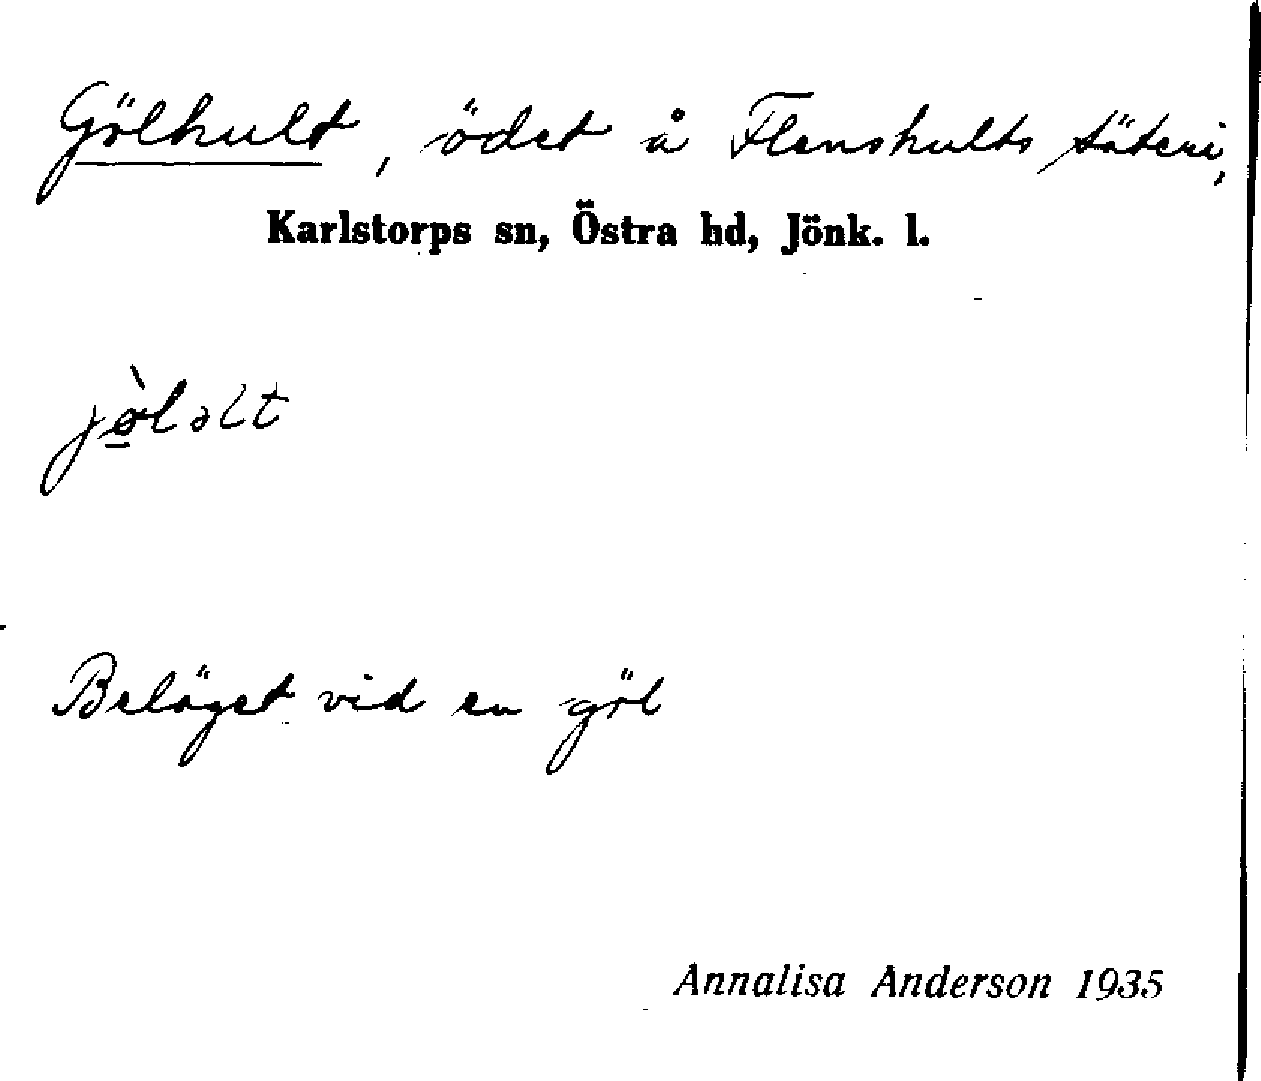 Gölhult, ödet å Flenshults säteri,
Karlstorps sn, Östra hd, Jönk. l.
jø̀ləlt
Beläget vid en göl
Annalisa Anderson 1935